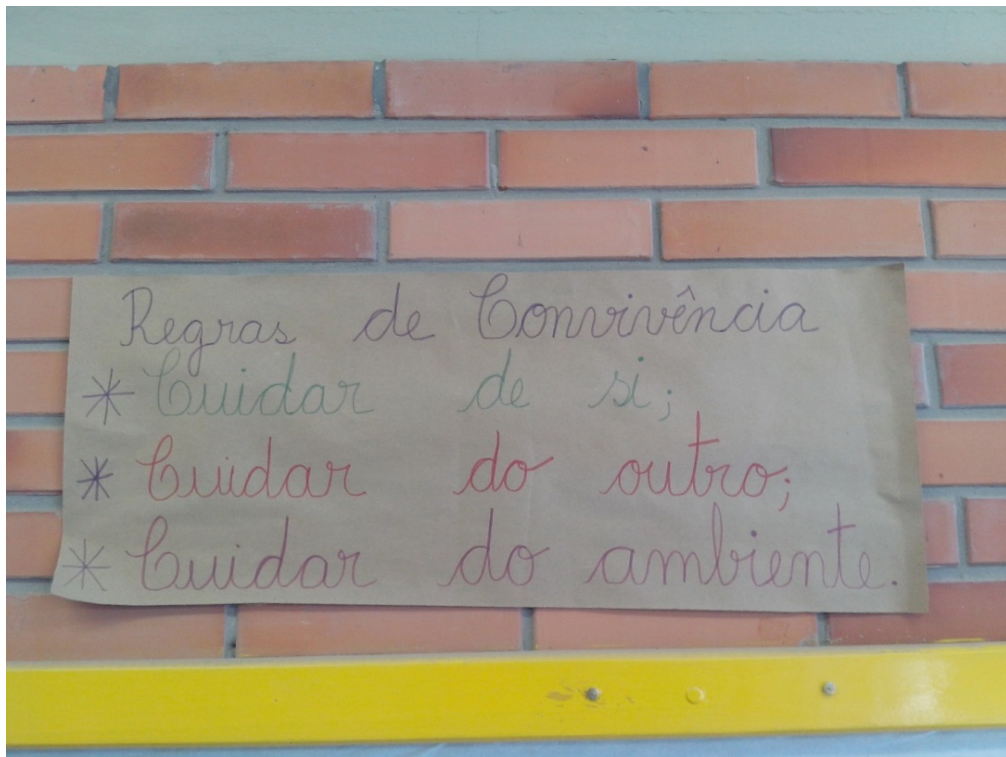 Regras de Convivência
* Cuidar de si;
* Cuidar do outro;
* Cuidar do ambiente.